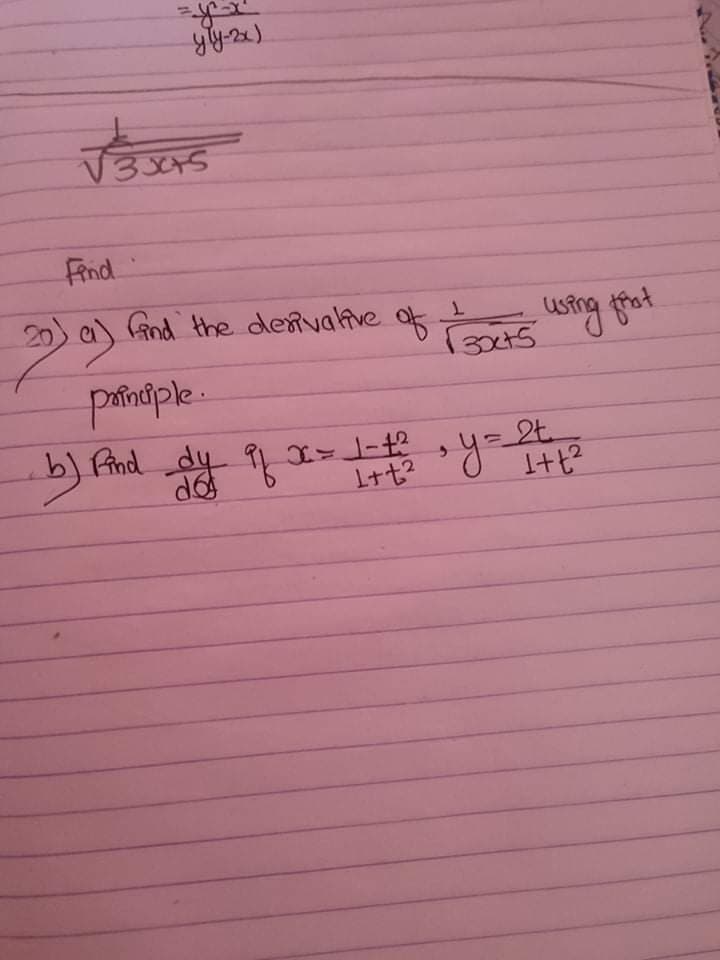 = y² - x²
y(y-2x)
1
√3x+5
Find
20) a) Find the derivative of 1/√3x+5 using first
principle.
b) Find dy/dx if x = 1-t²/1+t² , y = 2t/1+t²